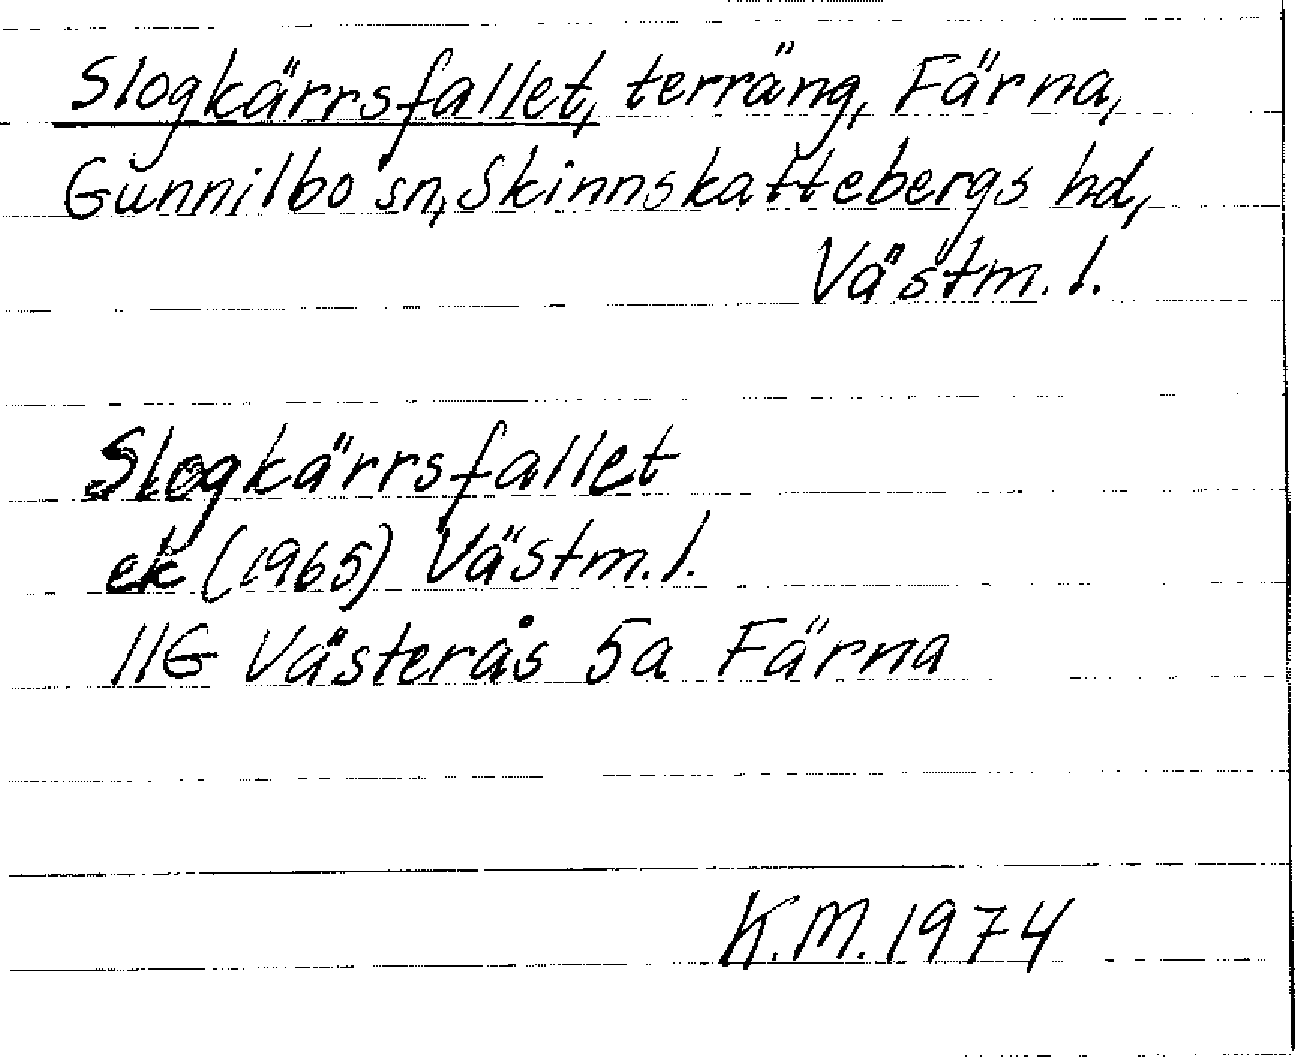 Slogkärrsfallet, terräng, Färna,
Gunnilbo sn, Skinnskattebergs hd,
Västm. l.
Slogkärrsfallet
ek (1965) Västm. l.
11G Västerås 5a Färna
K.M. 1974